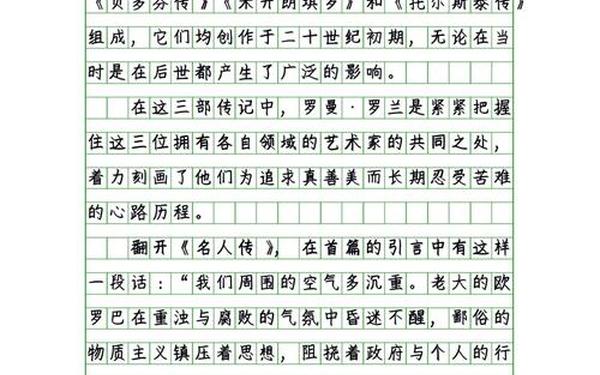 《贝多芬传》《米开朗琪罗》和《托尔斯泰传》
组成，它们均创作于二十世纪初期，无论在当
时是在后世都产生了广泛的影响。
在这三部传记中，罗曼·罗兰是紧紧把握
住这三位拥有各自领域的艺术家的共同之处，
着力刻画了他们为追求真善美而长期忍受苦难
的心路历程。
翻开《名人传》，在首篇的引言中有这样
一段话：“我们周围的空气多沉重。老大的欧
罗巴在重浊与腐败的气氛中昏迷不醒，鄙俗的
物质主义镇压着思想，阻挠着政府与个人的行